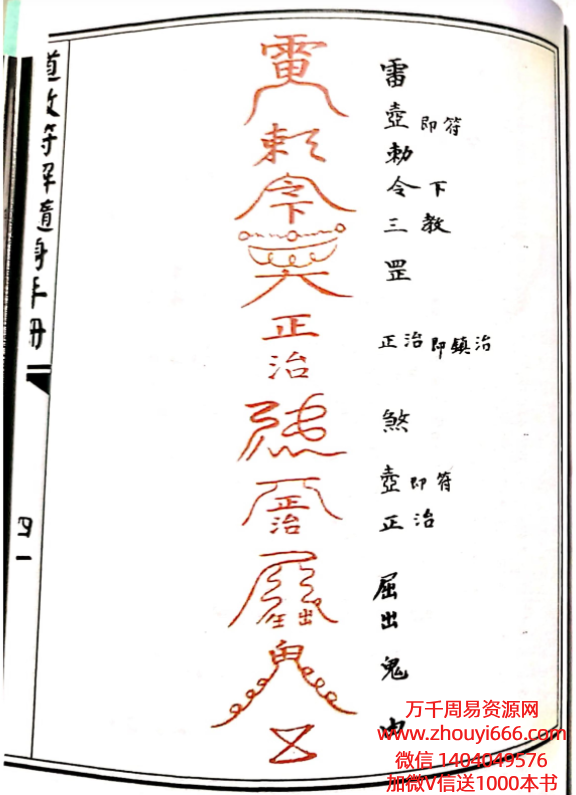 道教符解隨身手册
四一
雷
敕
令
下
正
治
正
治
出
雷
壺 即符
勅
令 下
三 教
罡
正治 即鎮治
煞
壺 即符
正 治
屈
出
鬼
万千周易资源网
www.zhouyi666.com
微信 1404049576
加微V信送1000本书